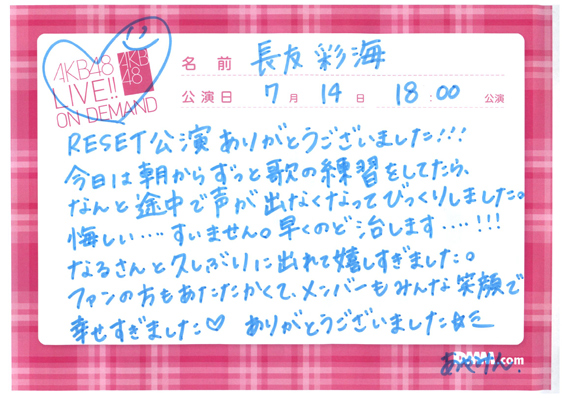 AKB48
LIVE!!
ON DEMAND
AKB
48
名前 長友彩海
公演日 7月14日 18:00 公演
RESET公演ありがとうございました!!!
今日は朝からずっと歌の練習をしてたら、
なんと途中で声が出なくなってびっくりしました。
悔しい….すいません。早くのど治します….!!!
なるさんと久しぶりに出れて嬉しすぎました。
ファンの方もあたたかくて、メンバーもみんな笑顔で
幸せすぎました♡ ありがとうございました☆彡
.com
あやみん.